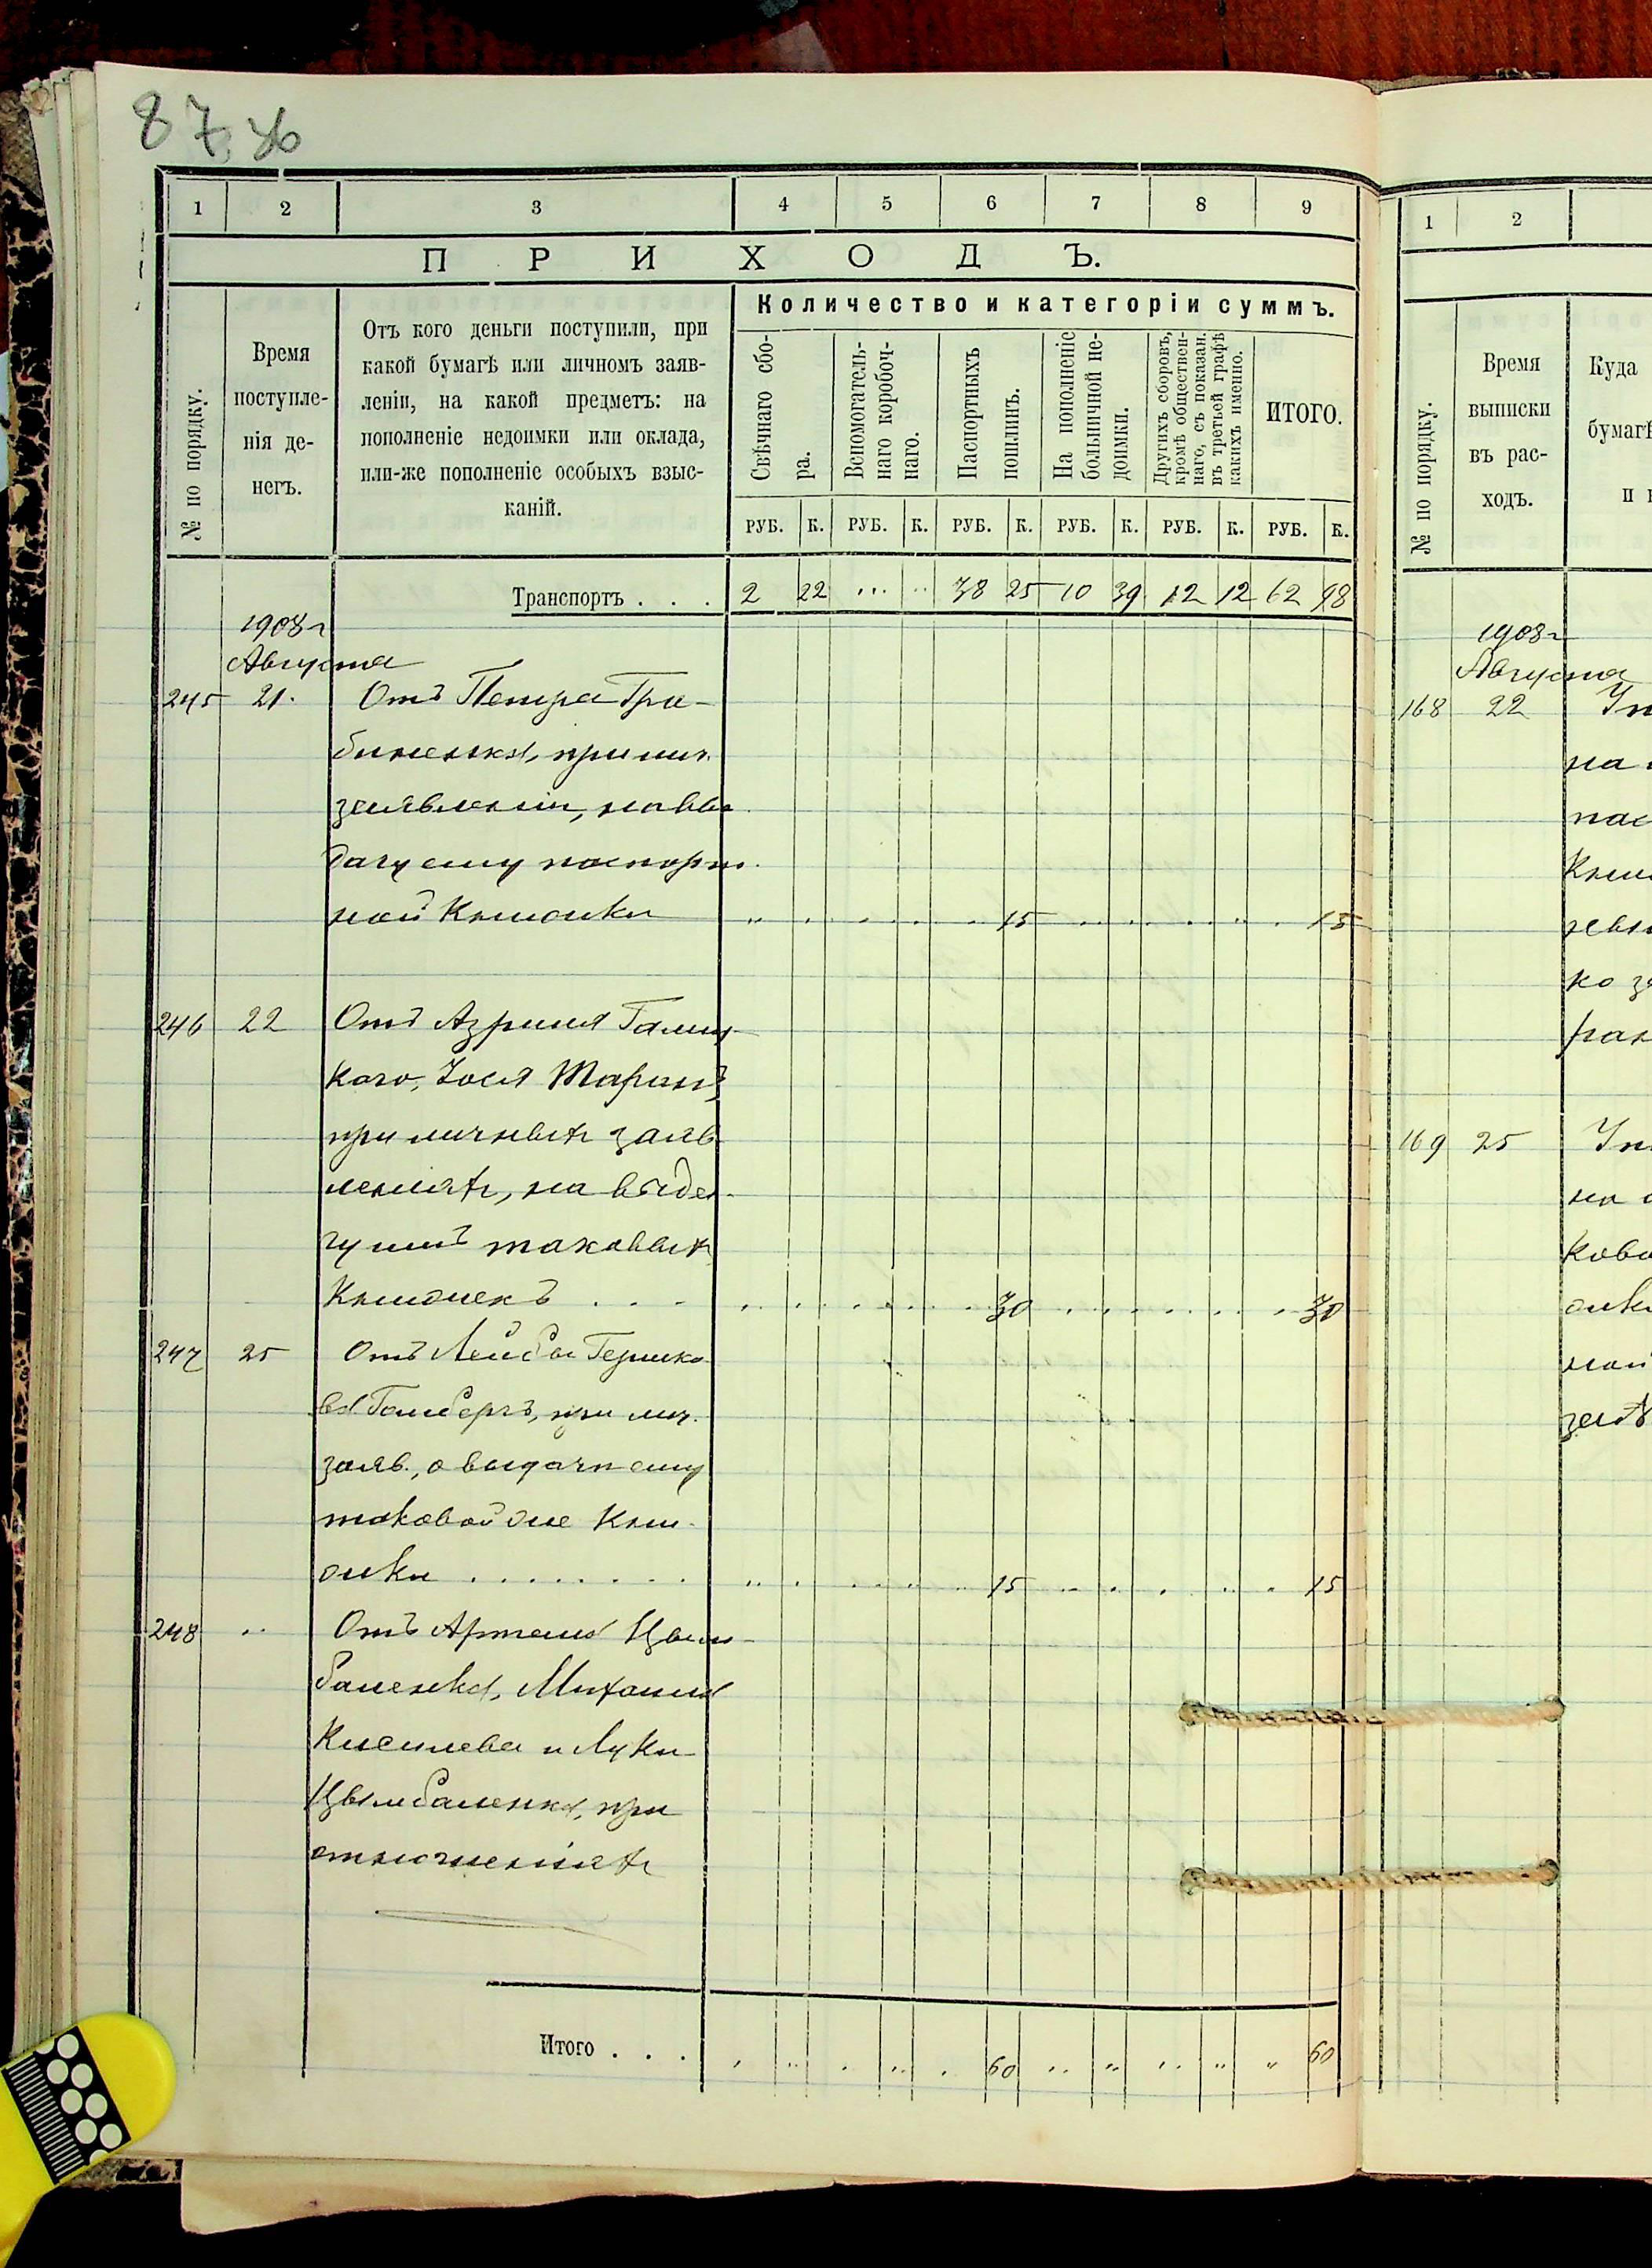 87, 86
1 2 3 4 5 6 7 8 9
ПРИХОДЪ.
№ по порядку.
Время поступле-
нія де-
негъ.
Отъ кого деньги поступили, при
какой бумагѣ или личномъ заяв-
леніи, на какой предметъ: на
пополненіе недоимки или оклада,
или-же пополненіе особыхъ взыс-
каній.
Количество и категоріи суммъ.
Свѣчнаго сбо-
ра.
Вспомогатель-
наго коробоч-
наго.
Паспортныхъ
пошлинъ.
На пополненіе
больничной не-
доимки.
Другихъ сборовъ,
кромѣ обществен-
наго, съ показан.
въ третьей графѣ
какихъ именно.
ИТОГО.
РУБ. К. РУБ. К. РУБ. К. РУБ. К. РУБ. К. РУБ. К.
Транспортъ . . . 2 22 ... .. 38 25 10 39 12 12 62 98
1908 г
Августа
245 21. Отъ Петра Гри-
биненка, при лич.
заявленіи, на вы
дачу ему паспорт
ной книжки 15 15
246 22 Отъ Азриля Галиц-
каго, Іося Таранъ
при личныхъ заяв
леніяхъ, на выда-
чу имъ таковыхъ
книжекъ . . . 30 30
247 25 Отъ Лейбы Гершко
ва Гольбергъ, при лич.
заяв., о выдачѣ ему
таковой же книж-
жки . . . . . . . . 15 15
248 .. Отъ Артема Цым-
баленка, Михаила
Киселева и Луки
Цымбаленка, при
отношеніяхъ
Итого . . . 60 60
1 2
№ по порядку.
Время
выписки
въ рас-
ходъ.
Куда
бумагѣ
1908 г
Августа
168 22
на
пас
Книж
ко за
169 25
на
ково
жки
ной